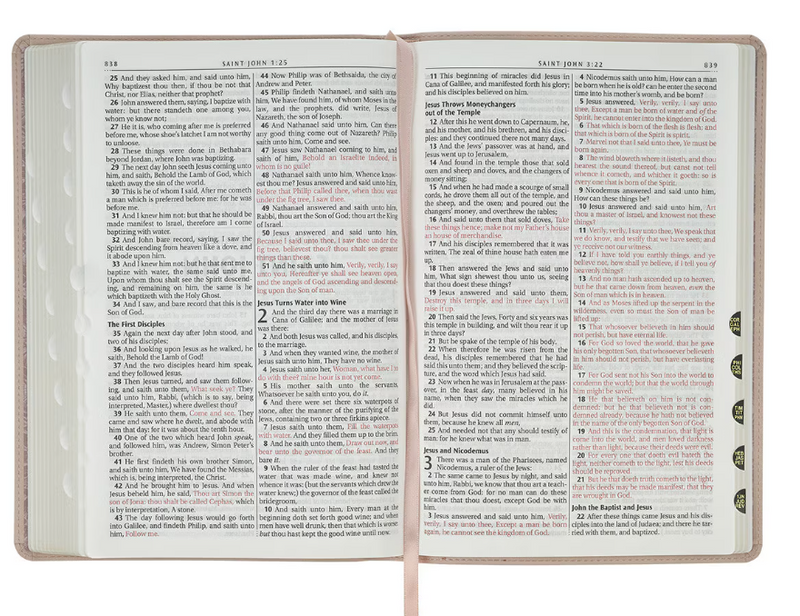 838
SAINT JOHN 1:25
25 And they asked him, and said unto him,
Why baptizest thou then, if thou be not that
Christ, nor Elias, neither that prophet?
26 John answered them, saying, I baptize with
water: but there standeth one among you,
whom ye know not;
27 He it is, who coming after me is preferred
before me, whose shoe's latchet I am not worthy
to unloose.
28 These things were done in Bethabara
beyond Jordan, where John was baptizing.
29 The next day John seeth Jesus coming unto
him, and saith, Behold the Lamb of God, which
taketh away the sin of the world.
30 This is he of whom I said, After me cometh
a man which is preferred before me: for he was
before me.
31 And I knew him not: but that he should be
made manifest to Israel, therefore am I come
baptizing with water.
32 And John bare record, saying, I saw the
Spirit descending from heaven like a dove, and
it abode upon him.
33 And I knew him not: but he that sent me to
baptize with water, the same said unto me,
Upon whom thou shalt see the Spirit descend-
ing, and remaining on him, the same is he
which baptizeth with the Holy Ghost.
34 And I saw, and bare record that this is the
Son of God.
The First Disciples
35 Again the next day after John stood, and
two of his disciples;
36 And looking upon Jesus as he walked, he
saith, Behold the Lamb of God!
37 And the two disciples heard him speak,
and they followed Jesus.
38 Then Jesus turned, and saw them follow-
ing, and saith unto them, What seek ye? They
said unto him, Rabbi, (which is to say, being
interpreted, Master,) where dwellest thou?
39 He saith unto them, Come and see. They
came and saw where he dwelt, and abode with
him that day: for it was about the tenth hour.
40 One of the two which heard John speak,
and followed him, was Andrew, Simon Peter's
brother.
41 He first findeth his own brother Simon,
and saith unto him, We have found the Messias,
which is, being interpreted, the Christ.
42 And he brought him to Jesus. And when
Jesus beheld him, he said, Thou art Simon the
son of Jona: thou shalt be called Cephas, which
is by interpretation, A stone.
43 The day following Jesus would go forth
into Galilee, and findeth Philip, and saith unto
him, Follow me.
44 Now Philip was of Bethsaida, the city of
Andrew and Peter.
45 Philip findeth Nathanael, and saith unto
him, We have found him, of whom Moses in the
law, and the prophets, did write, Jesus of
Nazareth, the son of Joseph.
46 And Nathanael said unto him, Can there
any good thing come out of Nazareth? Philip
saith unto him, Come and see.
47 Jesus saw Nathanael coming to him, and
saith of him, Behold an Israelite indeed, in
whom is no guile!
48 Nathanael saith unto him, Whence know-
est thou me? Jesus answered and said unto him,
Before that Philip called thee, when thou wast
under the fig tree, I saw thee.
49 Nathanael answered and saith unto him,
Rabbi, thou art the Son of God; thou art the King
of Israel.
50 Jesus answered and said unto him,
Because I said unto thee, I saw thee under the
fig tree, believest thou? thou shalt see greater
things than these.
51 And he saith unto him, Verily, verily, I say
unto you, Hereafter ye shall see heaven open,
and the angels of God ascending and descend-
ing upon the Son of man.
Jesus Turns Water into Wine
2 And the third day there was a marriage in
Cana of Galilee; and the mother of Jesus
was there:
2 And both Jesus was called, and his disciples,
to the marriage.
3 And when they wanted wine, the mother of
Jesus saith unto him, They have no wine.
4 Jesus saith unto her, Woman, what have I to
do with thee? mine hour is not yet come.
5 His mother saith unto the servants,
Whatsoever he saith unto you, do it.
6 And there were set there six waterpots of
stone, after the manner of the purifying of the
Jews, containing two or three firkins apiece.
7 Jesus saith unto them, Fill the waterpots
with water. And they filled them up to the brim.
8 And he saith unto them, Draw out now, and
bear unto the governor of the feast. And they
bare it.
9 When the ruler of the feast had tasted the
water that was made wine, and knew not
whence it was: (but the servants which drew the
water knew;) the governor of the feast called the
bridegroom,
10 And saith unto him, Every man at the
beginning doth set forth good wine; and when
men have well drunk, then that which is worse:
but thou hast kept the good wine until now.
SAINT JOHN 3:22
839
11 This beginning of miracles did Jesus in
Cana of Galilee, and manifested forth his glory;
and his disciples believed on him.
Jesus Throws Moneychangers
out of the Temple
12 After this he went down to Capernaum, he,
and his mother, and his brethren, and his disci-
ples: and they continued there not many days.
13 And the Jews' passover was at hand, and
Jesus went up to Jerusalem,
14 And found in the temple those that sold
oxen and sheep and doves, and the changers of
money sitting:
15 And when he had made a scourge of small
cords, he drove them all out of the temple, and
the sheep, and the oxen; and poured out the
changers' money, and overthrew the tables;
16 And said unto them that sold doves, Take
these things hence; make not my Father's house
an house of merchandise.
17 And his disciples remembered that it was
written, The zeal of thine house hath eaten me
up.
18 Then answered the Jews and said unto
him, What sign shewest thou unto us, seeing
that thou doest these things?
19 Jesus answered and said unto them,
Destroy this temple, and in three days I will
raise it up.
20 Then said the Jews, Forty and six years was
this temple in building, and wilt thou rear it up
in three days?
21 But he spake of the temple of his body.
22 When therefore he was risen from the
dead, his disciples remembered that he had
said this unto them; and they believed the scrip-
ture, and the word which Jesus had said.
23 Now when he was in Jerusalem at the pass-
over, in the feast day, many believed in his
name, when they saw the miracles which he
did.
24 But Jesus did not commit himself unto
them, because he knew all men,
25 And needed not that any should testify of
man: for he knew what was in man.
Jesus and Nicodemus
3 There was a man of the Pharisees, named
Nicodemus, a ruler of the Jews:
2 The same came to Jesus by night, and said
unto him, Rabbi, we know that thou art a teach-
er come from God: for no man can do these
miracles that thou doest, except God be with
him.
3 Jesus answered and said unto him, Verily,
verily, I say unto thee, Except a man be born
again, he cannot see the kingdom of God.
4 Nicodemus saith unto him, How can a man
be born when he is old? can he enter the second
time into his mother's womb, and be born?
5 Jesus answered, Verily, verily, I say unto
thee, Except a man be born of water and of the
Spirit, he cannot enter into the kingdom of God.
6 That which is born of the flesh is flesh; and
that which is born of the Spirit is spirit.
7 Marvel not that I said unto thee, Ye must be
born again.
8 The wind bloweth where it listeth, and thou
hearest the sound thereof, but canst not tell
whence it cometh, and whither it goeth: so is
every one that is born of the Spirit.
9 Nicodemus answered and said unto him,
How can these things be?
10 Jesus answered and said unto him, Art
thou a master of Israel, and knowest not these
things?
11 Verily, verily, I say unto thee, We speak that
we do know, and testify that we have seen; and
ye receive not our witness.
12 If I have told you earthly things, and ye
believe not, how shall ye believe, if I tell you of
heavenly things?
13 And no man hath ascended up to heaven,
but he that came down from heaven, even the
Son of man which is in heaven.
14 And as Moses lifted up the serpent in the
wilderness, even so must the Son of man be
lifted up:
15 That whosoever believeth in him should
not perish, but have eternal life.
16 For God so loved the world, that he gave
his only begotten Son, that whosoever believeth
in him should not perish, but have everlasting
life.
17 For God sent not his Son into the world to
condemn the world; but that the world through
him might be saved.
18 He that believeth on him is not con-
demned: but he that believeth not is con-
demned already, because he hath not believed
in the name of the only begotten Son of God.
19 And this is the condemnation, that light is
come into the world, and men loved darkness
rather than light, because their deeds were evil.
20 For every one that doeth evil hateth the
light, neither cometh to the light, lest his deeds
should be reproved.
21 But he that doeth truth cometh to the light,
that his deeds may be made manifest, that they
are wrought in God.
John the Baptist and Jesus
22 After these things came Jesus and his dis-
ciples into the land of Judaea; and there he tar-
ried with them, and baptized.
COR
GAL
EPH
PHI
COL
THS
TIM
TIT
PHM
HEB
JAS
PET
1JN
JUD
REV